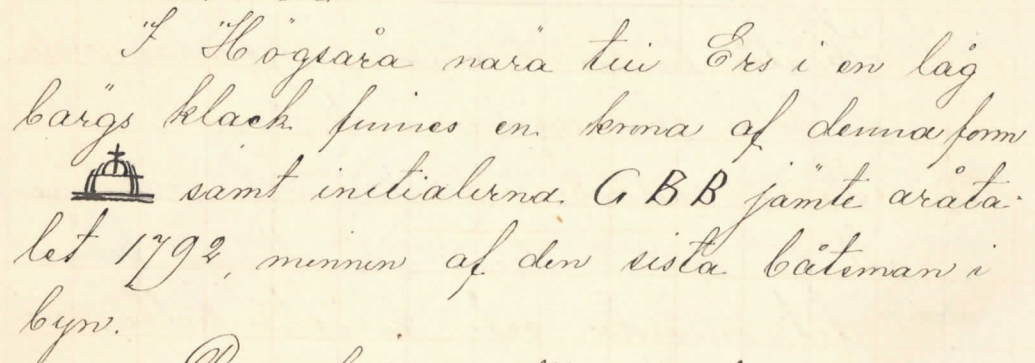 I Högsåra nära till Ers i en låg
bärgs klack finnes en krona af denna form
samt initialerna G B B jämte aråta-
let 1792, minnen af den sista båtsman i
byn.